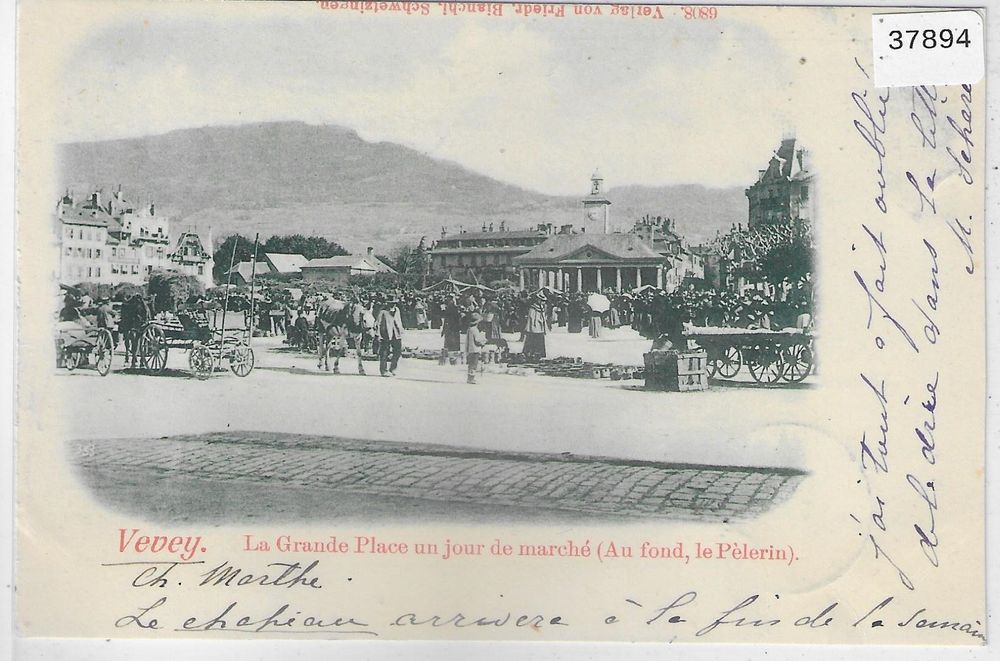 6808. Verlag von Friedr. Bianchi, Schwetzingen.
37894
Vevey. La Grande Place un jour de marché (Au fond, le Pèlerin).
Ch. Marthe.
Le chapeau arrivera à la fin de la semaine
j'ai tout à fait oublié
de le dire dans la
M.